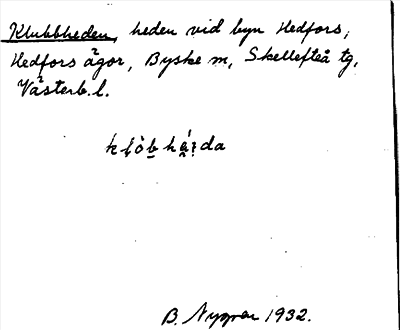 Klubbheden, heden vid byn Hedfors,
Hedfors ägor, Byske sn, Skellefteå tg,
Västerb. l.
B. Nygren 1932.